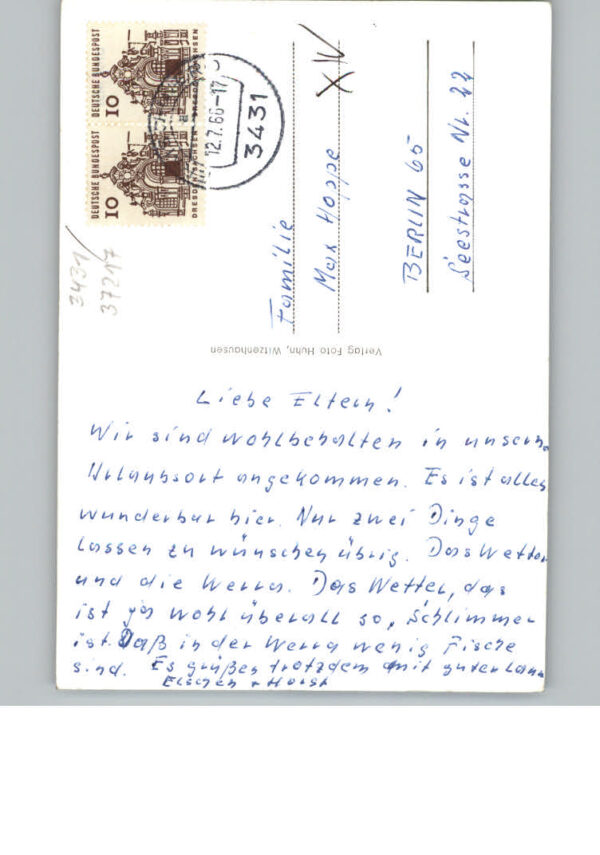 DEUTSCHE BUNDESPOST
10
DEUTSCHE BUNDESPOST
10
DRESDEN
SACHSEN
12.7.66-17
3431
XIV
Familie
Max Hoppe
BERLIN 65
Seestrasse Nr. 22
3431/
37217
Verlag Foto Huhn, Witzenhausen
Liebe Eltern!
Wir sind wohlbehalten in unserm
Urlaubsort angekommen. Es ist alles
wunderbar hier. Nur zwei Dinge
lassen zu wünschen übrig. Das Wetter
und die Werra. Das Wetter, das
ist ja wohl überall so, Schlimmer
ist. Daß in der Werra wenig Fische
sind. Es grüßen trotzdem mit guter Laune
Elschen + Horst